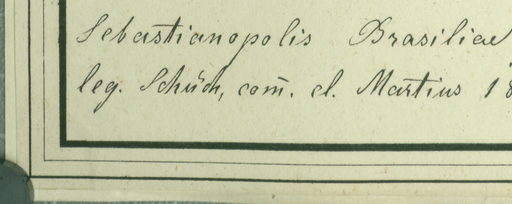 Sebastianopolis Brasiliae
leg. Schüch, com̄. cl. Martius 18